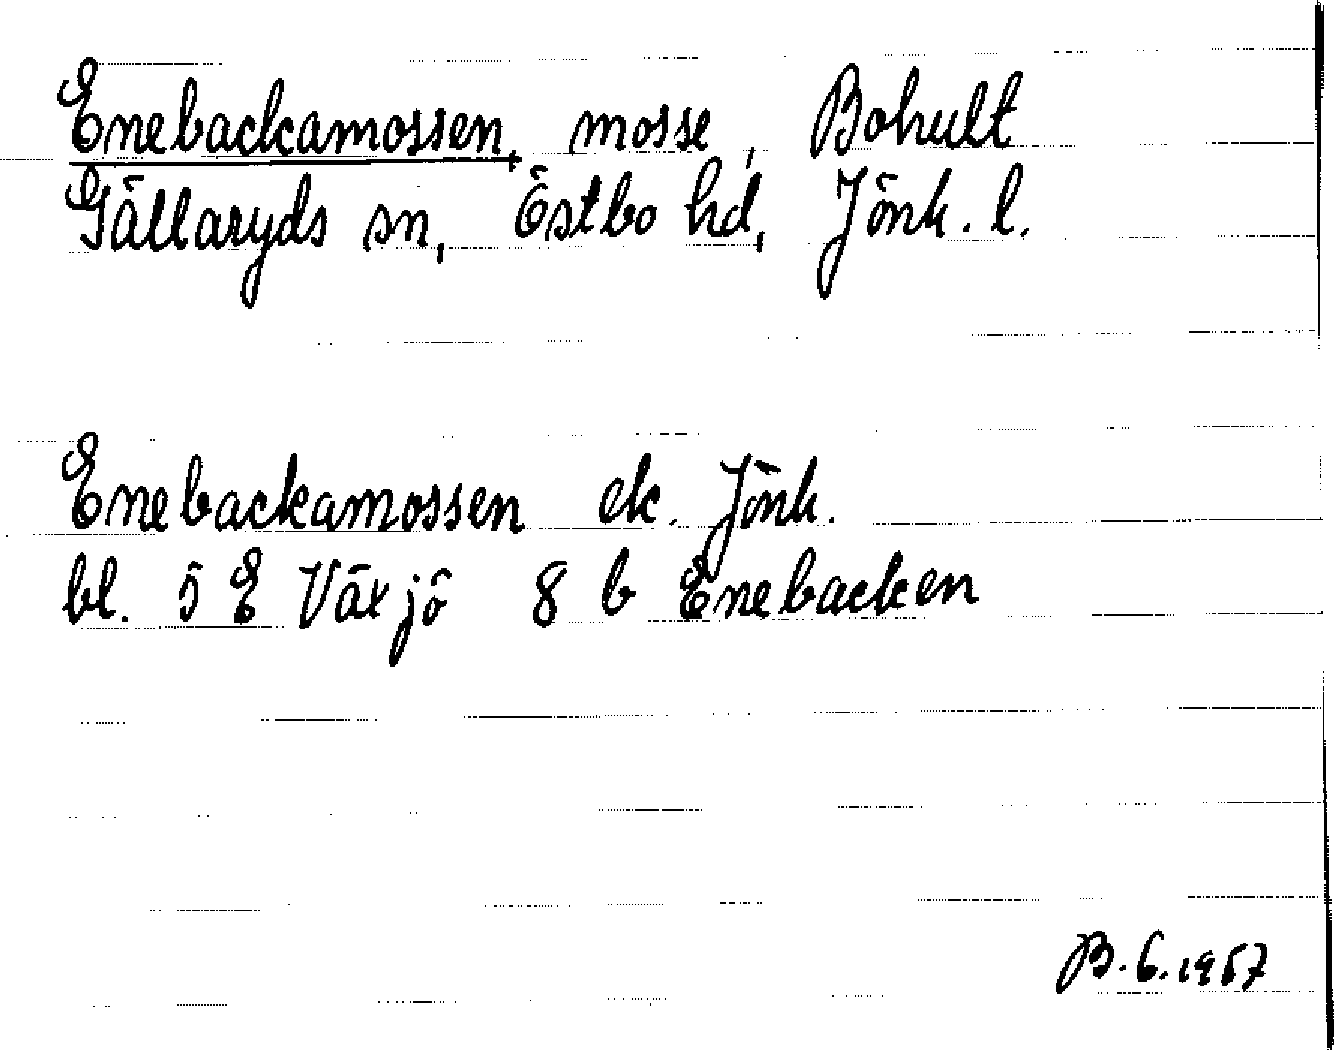 Enebackamossen, mosse, Bohult
Gällaryds sn, Östbo hd, Jönk. l.
Enebackamossen ek. Jönk.
bl. 5 E Växjö 8 b Enebacken
B. 6. 1967